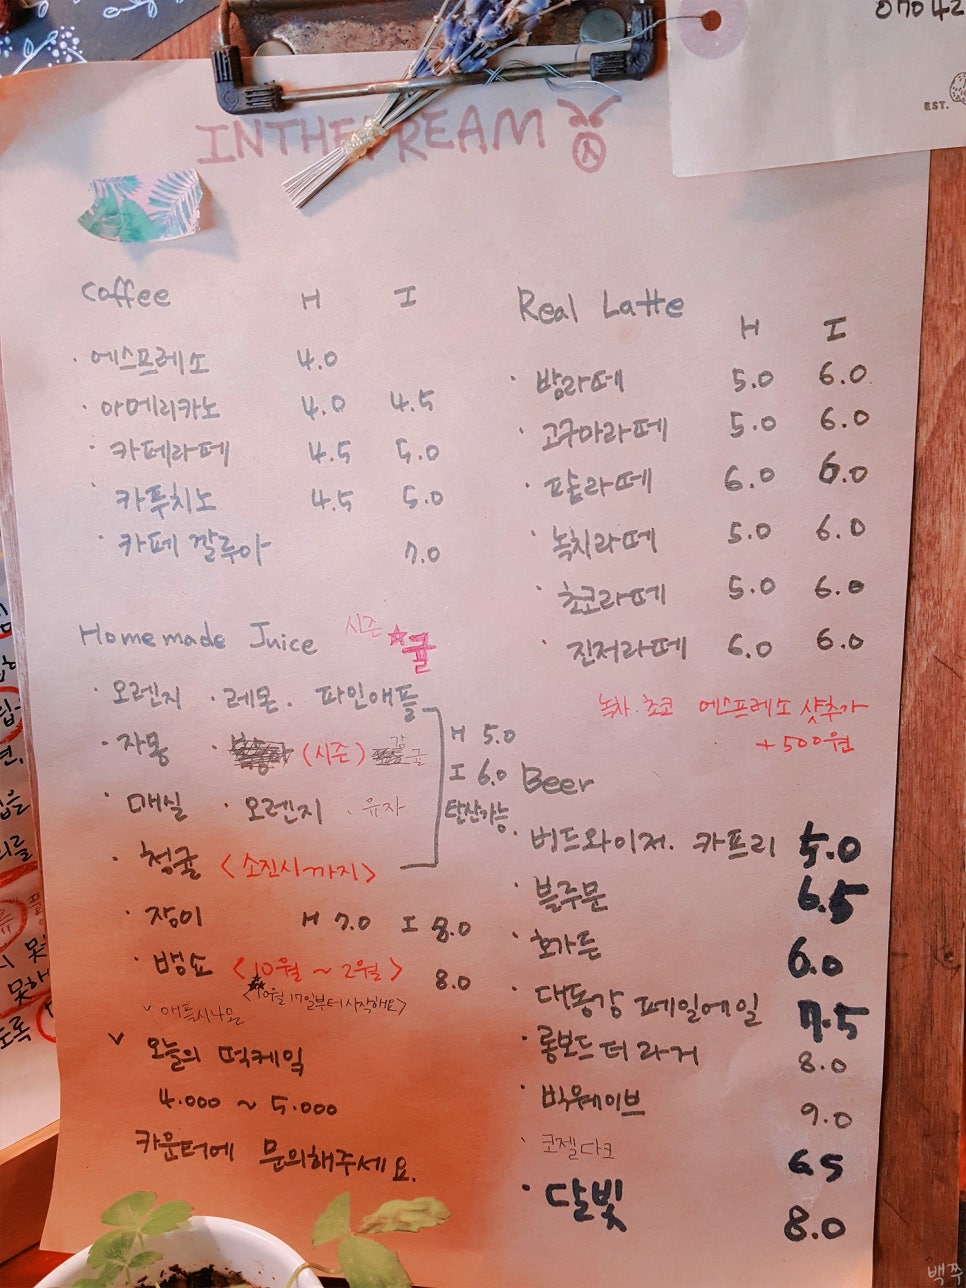 INTHEDREAM
07042
EST.
Coffee H I
· 에스프레소 4.0
· 아메리카노 4.0 4.5
· 카페라떼 4.5 5.0
· 카푸치노 4.5 5.0
· 카페깔루아 7.0
Homemade Juice 시즌 ☆귤
· 오렌지 · 레몬. 파인애플
· 자몽 · (시즌) 감 귤
· 매실 · 오렌지 · 유자
· 청귤 <소진시까지>
H 5.0
I 6.0
탄산가능
· 짱이 H 7.0 I 8.0
· 뱅쇼 <10월 ~ 2월> 8.0
<10월 17일부터시작해요>
v 애플시나몬
v 오늘의 떡케익
4.000 ~ 5.000
카운터에 문의해주세요.
Real Latte
H I
· 밤라떼 5.0 6.0
· 고구마라떼 5.0 6.0
· 팥라떼 6.0 6.0
· 녹차라떼 5.0 6.0
· 초코라떼 5.0 6.0
· 진저라떼 6.0 6.0
녹차.초코 에스프레소 샷추가
+500원
Beer
· 버드와이저. 카프리 5.0
· 블루문 6.5
· 호가든 6.0
· 대동강 페일에일 7.5
· 롱보드 더 라거 8.0
· 빅웨이브 9.0
· 코젤다크 6.5
· 달빛 8.0
백쭈